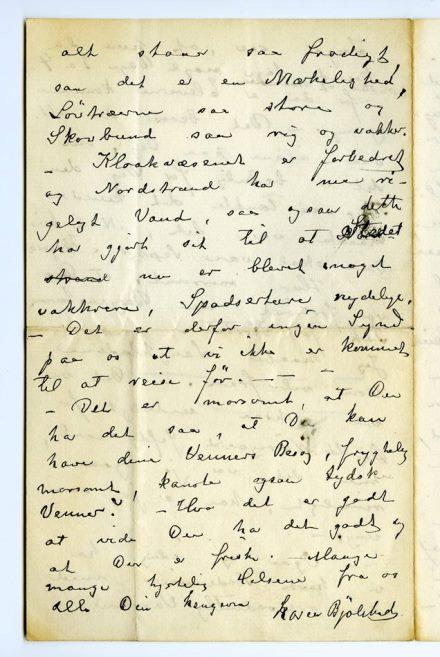 alt staar saa frodigt,
saa det er en Mærkelighed,
Løvtræerne saa store og
Skovbund saa rig og vakker.
– Kloakvæsenet er forbedret
og Nordstrand har nu ri-
geligt Vand, saa ogsaa dette
har gjort sit til at Stedet
strand nu er blevet noget
vakkrere, Spadserture nydelige.
– Det er derfor ingen Synd
paa os at vi ikke er kommet
til at reise før. – – –
– Det er morsomt, at Du
ha det saa, at Du kan
have dine Venners Besøg, frygtelig
morsomt, kanske ogsaa tydske
Venner? – Hvor det er godt
at vide Du ha det godt og
at Du er frisk. – Mange
mange hjertelig Helsener fra os
alle Din hengivne
Karen Bjölstad